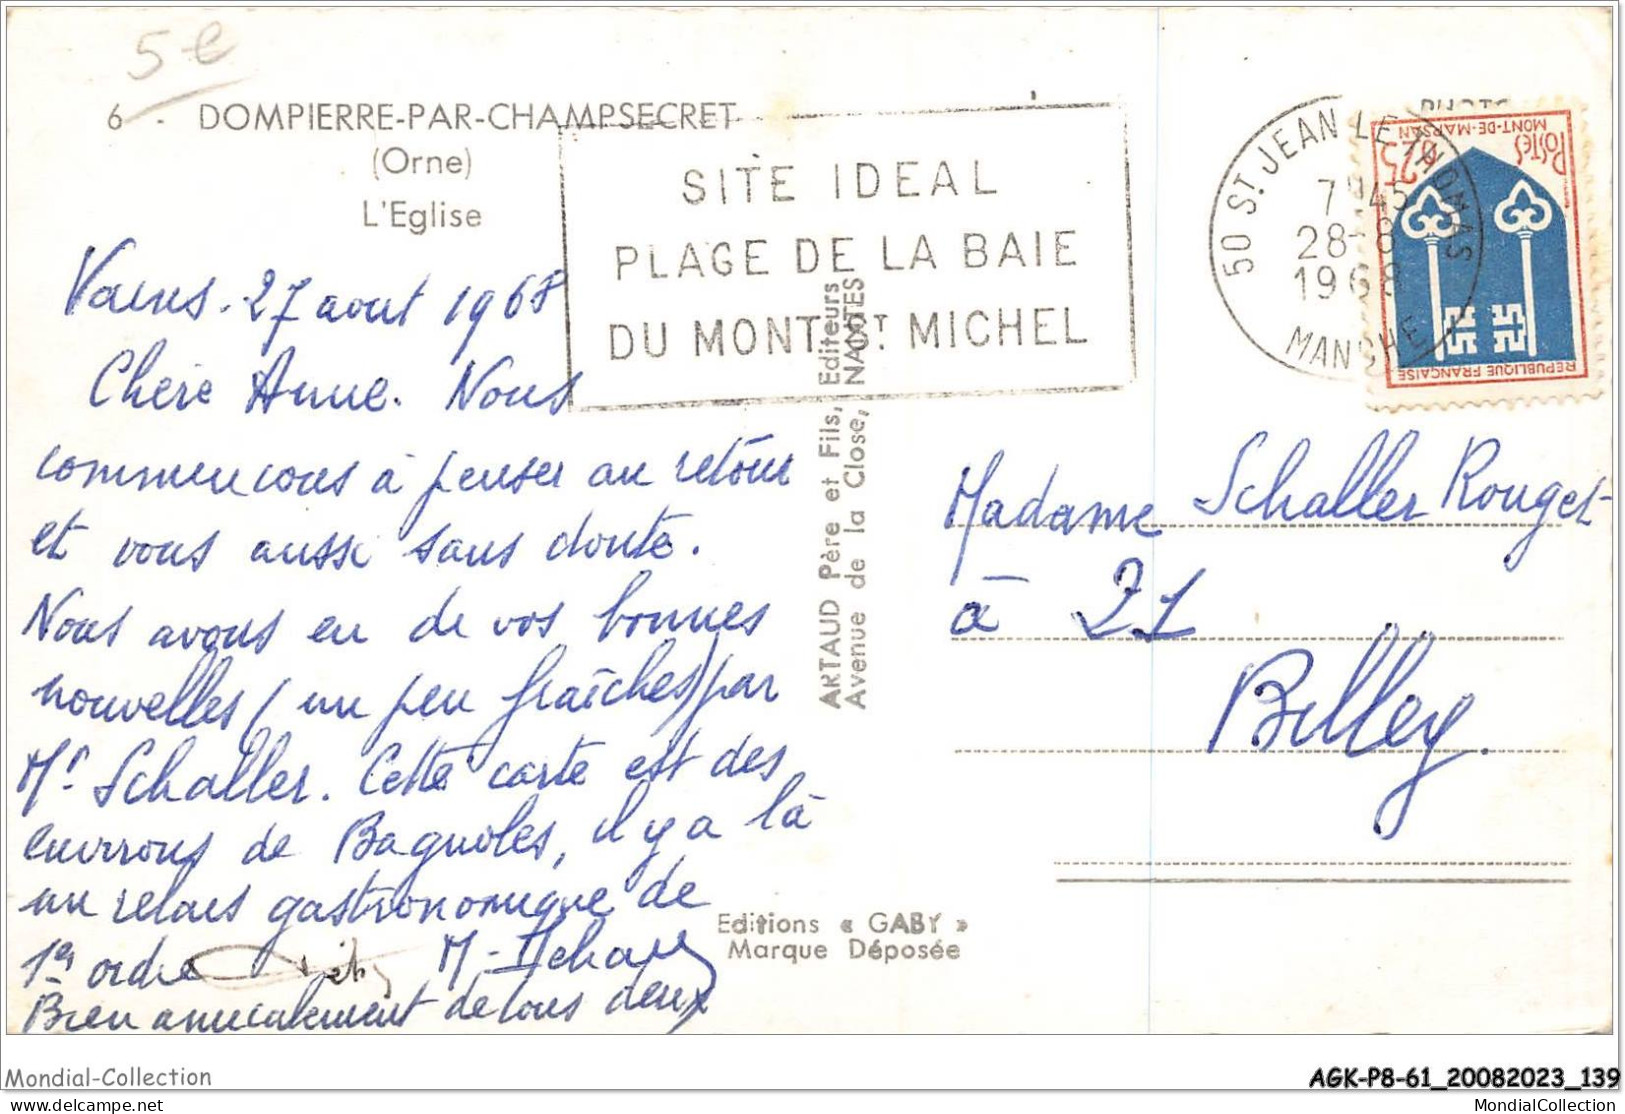 5 e
6 - DOMPIERRE-PAR-CHAMPSECRET
(Orne)
L'Eglise
SITE IDEAL
PLAGE DE LA BAIE
DU MONT ST MICHEL
50 ST JEAN LE THOMAS
7H45
28-8
1968
MANCHE
POSTES
0.25
MONT-DE-MARSAN
REPUBLIQUE FRANÇAISE
PHOTO
Vains. 27 aout 1968
Chère Anne. Nous
commencons à penser au retour
et vous aussi sans doute.
Nous avons eu de vos bonnes
nouvelles (un peu fraîches) par
Mr Schaller. Cette carte est des
environs de Bagnoles, il y a là
un relais gastronomique de
1er ordre
Bien amicalement de tous deux
ARTAUD Père et Fils, Editeurs
Avenue de la Close, NANTES
Editions « GABY »
Marque Déposée
Madame Schaller Rouget
à 21
Billey.
Mondial-Collection
AGK-P8-61_20082023_139
Mondial-Collection.net
MondialCollection